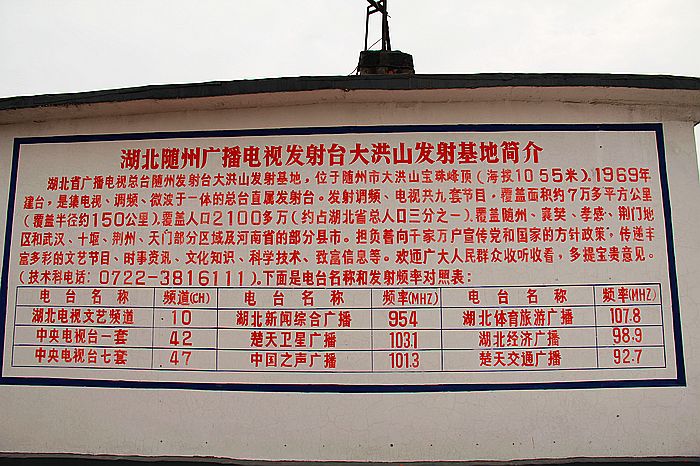 湖北随州广播电视发射台大洪山发射基地简介
湖北省广播电视总台随州发射台大洪山发射基地，位于随州市大洪山宝珠峰顶（海拔1055米）。1969年
建台，是集电视、调频、微波于一体的总台直属发射台。发射调频、电视共九套节目，覆盖面积约7万多平方公里
（覆盖半径约150公里）。覆盖人口2100多万（约占湖北省总人口三分之一）。覆盖随州、襄樊、孝感、荆门地
区和武汉、十堰、荆州、天门部分区域及河南省的部分县市。担负着向千家万户宣传党和国家的方针政策，传递丰
富多彩的文艺节目、时事资讯、文化知识、科学技术、致富信息等。欢迎广大人民群众收听收看，多提宝贵意见。
（技术科电话：0722-3816111）。下面是电台名称和发射频率对照表：
电台名称 频道(CH) 电台名称 频率(MHZ) 电台名称 频率(MHZ)
湖北电视文艺频道 10 湖北新闻综合广播 954 湖北体育旅游广播 107.8
中央电视台一套 42 楚天卫星广播 103.1 湖北经济广播 98.9
中央电视台七套 47 中国之声广播 101.3 楚天交通广播 92.7